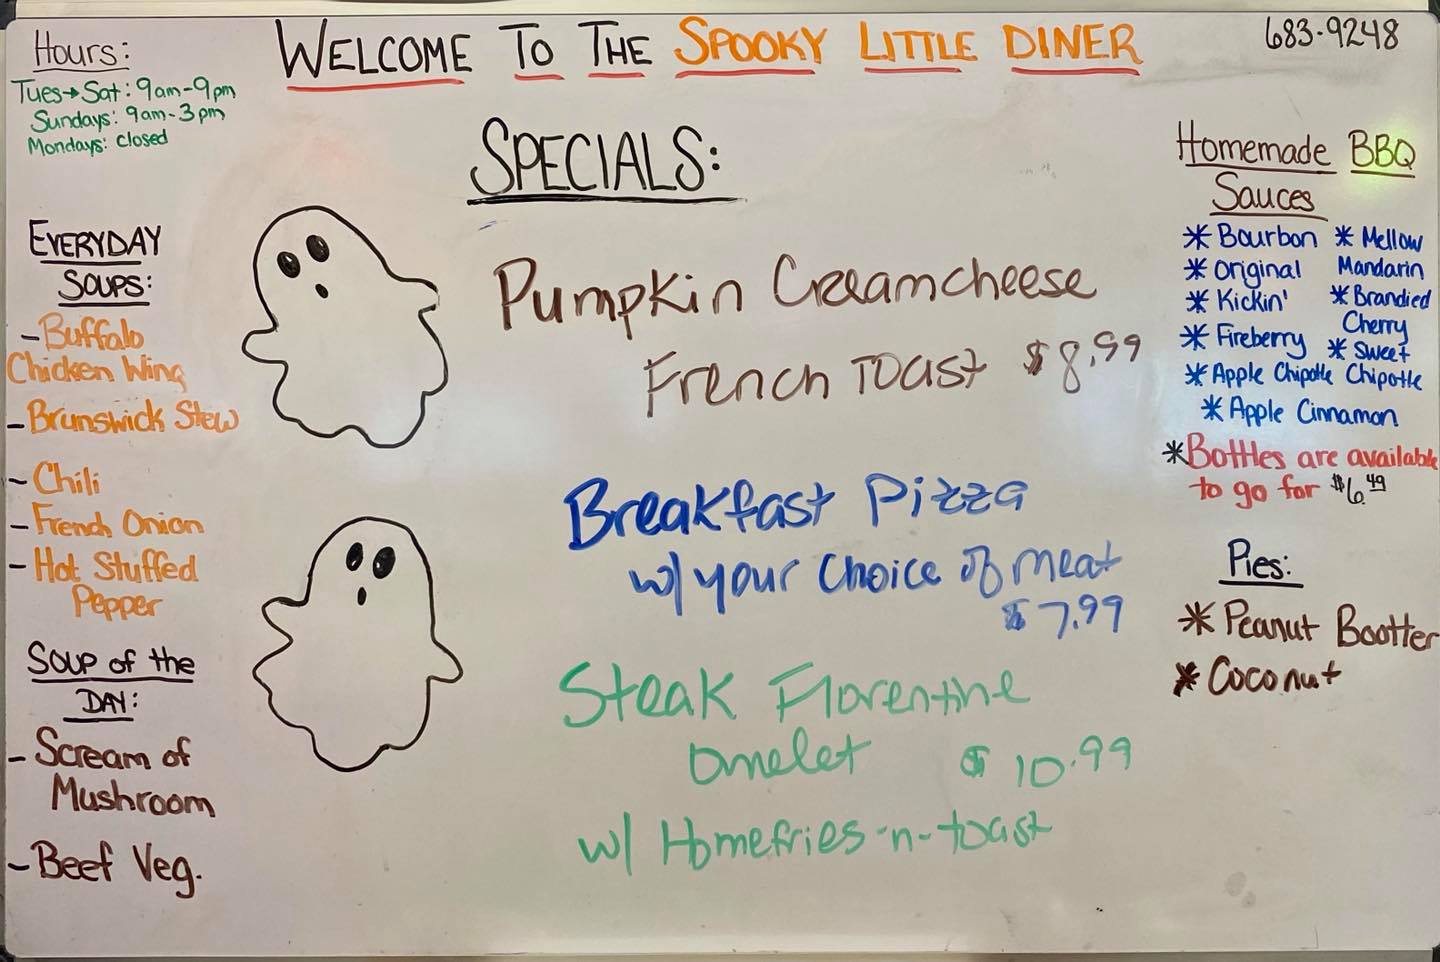 WELCOME TO THE SPOOKY LITTLE DINER
683-9248
Hours:
Tues→Sat: 9am-9pm
Sundays: 9am-3pm
Mondays: closed
EVERYDAY
SOUPS:
- Buffalo
Chicken Wing
- Brunswick Stew
- Chili
- French Onion
- Hot Stuffed
Pepper
SOUP of the
DAY:
- Scream of
Mushroom
- Beef Veg.
SPECIALS:
Pumpkin Creamcheese
French Toast $8.99
Breakfast Pizza
w/ your Choice of meat
$7.99
Steak Florentine
Omelet $10.99
w/ Homefries-n-toast
Homemade BBQ
Sauces
* Bourbon
* Original
* Kickin'
* Fireberry
* Apple Chipotle
* Apple Cinnamon
* Mellow
Mandarin
* Brandied
Cherry
* Sweet
Chipotle
* Bottles are available
to go for $6.49
Pies:
* Peanut Bootter
* Coconut